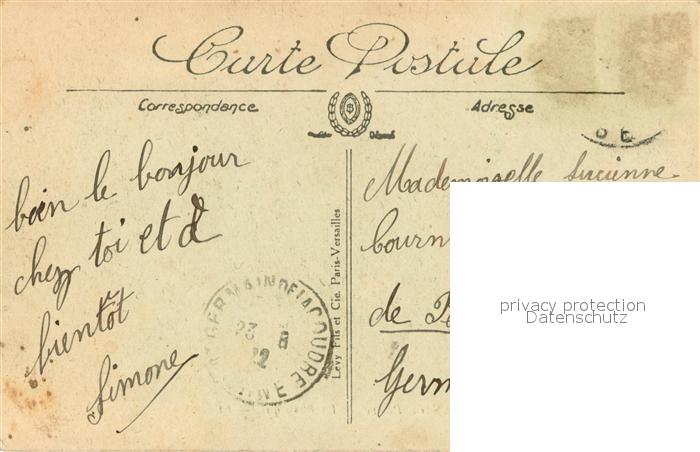 Carte Postale
Correspondance
Adresse
bien le bonjour
chez toi et à
bientôt
Simone
Levy Fils et Cie. Paris-Versailles
GERMAIN DE LA COUDRE
23 8
32
ORNE
Mademoiselle Lucienne
de
Germ
privacy protection
Datenschutz